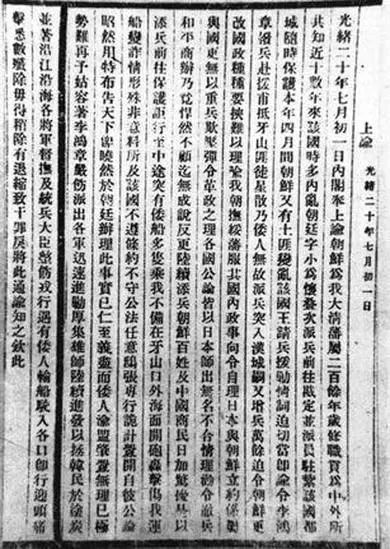 上諭
光緒二十年七月初一日
光緒二十年七月初一日內閣奉上諭朝鮮爲我大清藩屬二百餘年歲修職貢爲中外所
共知近十數年來該國時多內亂朝廷字小爲懷疊次派兵前往戡定並派員駐紮該國都
城隨時保護本年四月間朝鮮又有土匪變亂該國王請兵援勦情詞迫切當即諭令李鴻
章撥兵赴援甫抵牙山匪徒星散乃倭人無故派兵突入漢城嗣又增兵萬餘迫令朝鮮更
改國政種種要挾難以理諭我朝撫綏藩服其國內政事向令自理日本與朝鮮立約係屬
與國更無以重兵欺壓彊令革政之理各國公論皆以日本師出無名不合情理勸令撤兵
和平商辦乃竟悍然不顧迄無成說反更陸續添兵朝鮮百姓及中國商民日加驚擾是以
添兵前往保護詎行至中途突有倭船多隻乘我不備在牙山口外海面開礮轟擊傷我運
船變詐情形殊非意料所及該國不遵條約不守公法任意鴟張專行詭計釁開自彼公論
昭然用特布告天下俾曉然於朝廷辦理此事實已仁至義盡而倭人渝盟肇釁無理已極
勢難再予姑容著李鴻章嚴飭派出各軍迅速進勦厚集雄師陸續進發以拯韓民於塗炭
並著沿江沿海各將軍督撫及統兵大臣整飭戎行遇有倭人輪船駛入各口即行迎頭痛
擊悉數殲除毋得稍有退縮致干罪戾將此通諭知之欽此